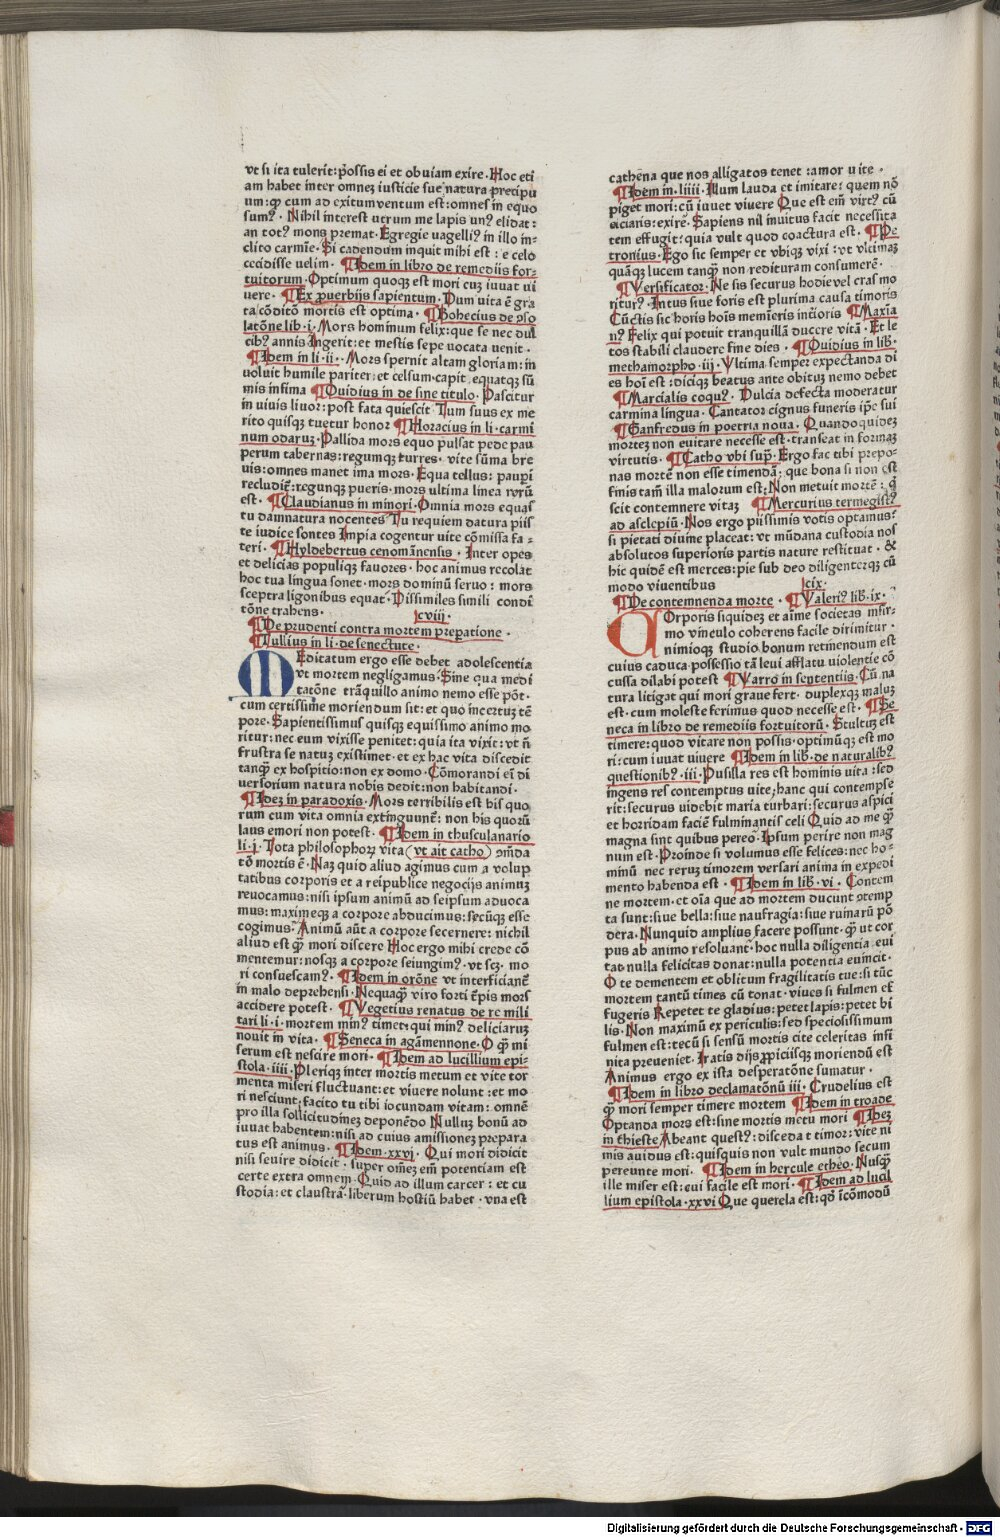 vt si ita tulerit: p̄ossis ei et obuiam exire. Hoc eti
am habet inter omnez iusticie sue natura precipu
um: qꝫ cum ad exitum ventum est: omnes in equo
sumꝰ. Nihil interest vtrum me lapis unꝰ elidat:
an totꝰ mons premat. Egregie vagelliꝰ in illo in-
clito carmīe. Si cadendum inquit mihi est: e celo
cecidisse uelim. ¶ Idem in libro de remediis for-
tuitorum. Optimum quoqꝫ est mori cuꝫ iuuat ui
uere. ¶ Ex ꝓuerbijs sapientum. Dum uita ē gra
ta cōditō mortis est optima. ¶ Bohecius de ꝯso
latōne lib. i. Mors hominum felix: que se nec dul
cibꝰ annis Ingerit: et mestis sepe uocata uenit.
¶ Idem in li. ii. Mors spernit altam gloriam: in
uoluit humile pariter: et celsum capit equatqꝫ sū
mis infima ¶ Ouidius in de sine titulo. Pascitur
in uiuis liuor: post fata quiescit Tum suus ex me
rito quisqꝫ tuetur honor ¶ Horacius in li. carmi
num odaruꝫ. Pallida mors equo pulsat pede pau
perum tabernas: regumqꝫ turres. vite sūma bre
uis: omnes manet ima mors. Equa tellus: paupī
recludit: regunqꝫ pueris. mors ultima linea rerū
est. ¶ Claudianus in minori. Omnia mors equas
tu damnatura nocentes Tu requiem datura piis
te iudice sontes Impia cogentur uite cōmissa fa-
teri. ¶ Hyldebertus cenomānensis. Inter opes
et delicias populiqꝫ fauores. hoc animus recolat
hoc tua lingua sonet. mors dominū seruo: mors
sceptra ligonibus equat. Dissimiles simili condi
tōne trahens. cviii.
¶ De prudenti contra mortem preparatione.
¶ Tullius in li. de senectute.
MEditatum ergo esse debet adolescentia
vt mortem negligamus. Sine qua medi
tatōne trāquillo animo nemo esse pōt.
cum certissime moriendum sit: et quo incertuꝫ tē
pore. Sapientissimus quisqꝫ equissimo animo mo
ritur: nec eum vixisse penitet: quia ita vixit: vt n̄
frustra se natuꝫ existimet. et ex hac vita discedit
tanqꝫ ex hospitio: non ex domo. Cōmorandi ei̅ di
uersorium natura nobis dedit: non habitandi.
¶ Ideꝫ in paradoxis. Mors terribilis est his quo
rum cum vita omnia extinguunt̄: non his quorū
laus emori non potest. ¶ Idem in thusculanario
li. i. Tota philosophorꝫ vita (vt ait catho) ꝯmēda
tō mortis ē. Naꝫ quid aliud agimus cum a volup
tatibus corporis et a reipublice negocijs animuꝫ
reuocamus: nisi ipsum animū ad seipsum aduoca
mus: maximeqꝫ a corpore abducimus: secūqꝫ esse
cogimus. Animū aūt a corpore secernere: nichil
aliud est qꝫ mori discere Hoc ergo mihi crede cō
mentemur: nosqꝫ a corpore seiungimꝰ. vt scꝫ. mo
ri consuescamꝰ. ¶ Idem in orōne vt interficiant̄
in malo deprehensi. Nequaqꝫ viro forti t̄pis mors
accidere potest. ¶ Vegetius renatus de re mili
tari li. i. mortem minꝰ timet: qui minꝰ deliciaruꝫ
nouit in vita. ¶ Seneca in agāmennone. O qꝫ mi
serum est nescire mori. ¶ Idem ad lucillium epi-
stola. iiii. Pleriqꝫ inter mortis metum et vite tor
menta miseri fluctuant: et viuere nolunt: et mo
ri nesciunt: facito tu tibi iocundam vitam: omnē
pro illa sollicitudinez deponēdo Nulluꝫ bonū ad
iuuat habentem: nisi ad cuius amissionez prepara
tus est animus. ¶ Idem. xxvi. Qui mori didicit
nisi seuire didicit. super om̄eꝫ em̄ potentiam est
certe extra omnem. Quid ad illum carcer: et cu
stodia: et claustra. liberum hostiū habet. vna est
cathena que nos alligatos tenet: amor uite.
¶ Idem in. liiii. Illum lauda et imitare: quem nō
piget mori: cū iuuet viuere Que est em̄ virtꝰ cū
eiciaris: exire. Sapiens nil inuitus facit necessita
tem effugit: quia vult quod coactura est. ¶ Pe
tronius. Ego sic semper et vbiqꝫ vixi: vt vltimaꝫ
quāqꝫ lucem tanqꝫ non redituram consumerē.
¶ Versificator. Ne sis securus hodie vel cras mo
ritur? Intus siue foris est plurima causa timoris
Cūctis sic horis hois̄ memīeris inc̄ioris ¶ Maxia
nꝰ Felix qui potuit tranquillā ducere vitā. Et le
tos stabili claudere fine dies. ¶ Ouidius in lib.
methamorpho. iij. Vltima semper expectanda di
es hoī est: dicīqꝫ beatus ante obituꝫ nemo debet
¶ Marcialis coquꝰ. Dulcia defecta moderatur
carmina lingua. Cantator cignus funeris ip̄e sui
¶ Ganfredus in poetria noua. Quando quidez
mortez non euitare necesse est. transeat in formaꝫ
virtutis. ¶ Catho vbi supꝰ. Ergo fac tibi prepo-
nas mortē non esse timendā: que bona si non est
finis tam̄ illa malorum est. Non metuit mortē: q̄
scit contemnere vitaꝫ ¶ Mercurius termegistꝰ
ad asclepiū. Nos ergo piissimis votis optamus:
si pietati diuine placeat: vt mūdana custodia nos
absolutos superioris partis nature restituat. &
hic quidē est merces: pie sub deo diligenterqꝫ cū
modo viuentibus cix.
¶ De contemnenda morte. ¶ Valeriꝰ lib. ix.
COrporis siquidez et aīme societas infir-
mo vinculo coherens facile dirimitur.
nimioqꝫ studio bonum retinendum est
cuius caduca possessio tā leui afflatu violentie cō
cussa dilabi potest ¶ Varro in sententiis. Cū na
tura litigat qui mori graue fert. duplexqꝫ maluꝫ
est. cum moleste ferimus quod necesse est. ¶ Se
neca in libro de remediis fortuitorū. Stultuꝫ est
timere: quod vitare non possis. optimūqꝫ est mo
ri: cum iuuat viuere ¶ Idem in lib. de naturalibꝰ
questionibꝰ. iii. Pusilla res est hominis vita: sed
ingens res contemptus vite: hanc qui contempse
rit: securus videbit maria turbari: securus aspici
et horridam faciē fulminantis celi Quid ad me qꝫ
magna sint quibus pereo. Ipsum perire non mag
num est. Proinde si volumus esse felices: nec ho-
minū nec reruꝫ timorem versari anima in expedi
mento habenda est. ¶ Idem in lib. vi. Contem
ne mortem. et oīa que ad mortem ducunt ꝯtemp
ta sunt: siue bella: siue naufragia: siue ruinarū pō
dera. Nunquid amplius facere possunt. qꝫ ut cor
pus ab animo resoluant. hoc nulla diligentia eui
tat. nulla felicitas donat: nulla potentia euincit.
O te dementem et oblitum fragilitatis tue: si tūc
mortem tantū times cū tonat. viues si fulmen ef
fugeris Repetet te gladius: petet lapis: petet bi
lis. Non maximū ex periculis: sed speciosissimum
fulmen est: tecū si sensū mortis cite celeritas infi
nita preueniet. Iratis dijs ꝓpiciisqꝫ moriendū est
Animus ergo ex ista desperatōne sumatur.
¶ Idem in libro declamatōnū iii. Crudelius est
qꝫ mori semper timere mortem ¶ Idem in troade
Optanda mors est: sine mortis metu mori ¶ Ideꝫ
in thieste Abeant questꝰ: disceda t timor: vite ni
mis auidus est: quisquis non vult mundo secum
pereunte mori. ¶ Idem in hercule etheo. Nusqꝫ
ille miser est: cui facile est mori. ¶ Idem ad lucil
lium epistola. xxvi Que querela est: qd̄ icōmodū
Digitalisierung gefördert durch die Deutsche Forschungsgemeinschaft - DFG